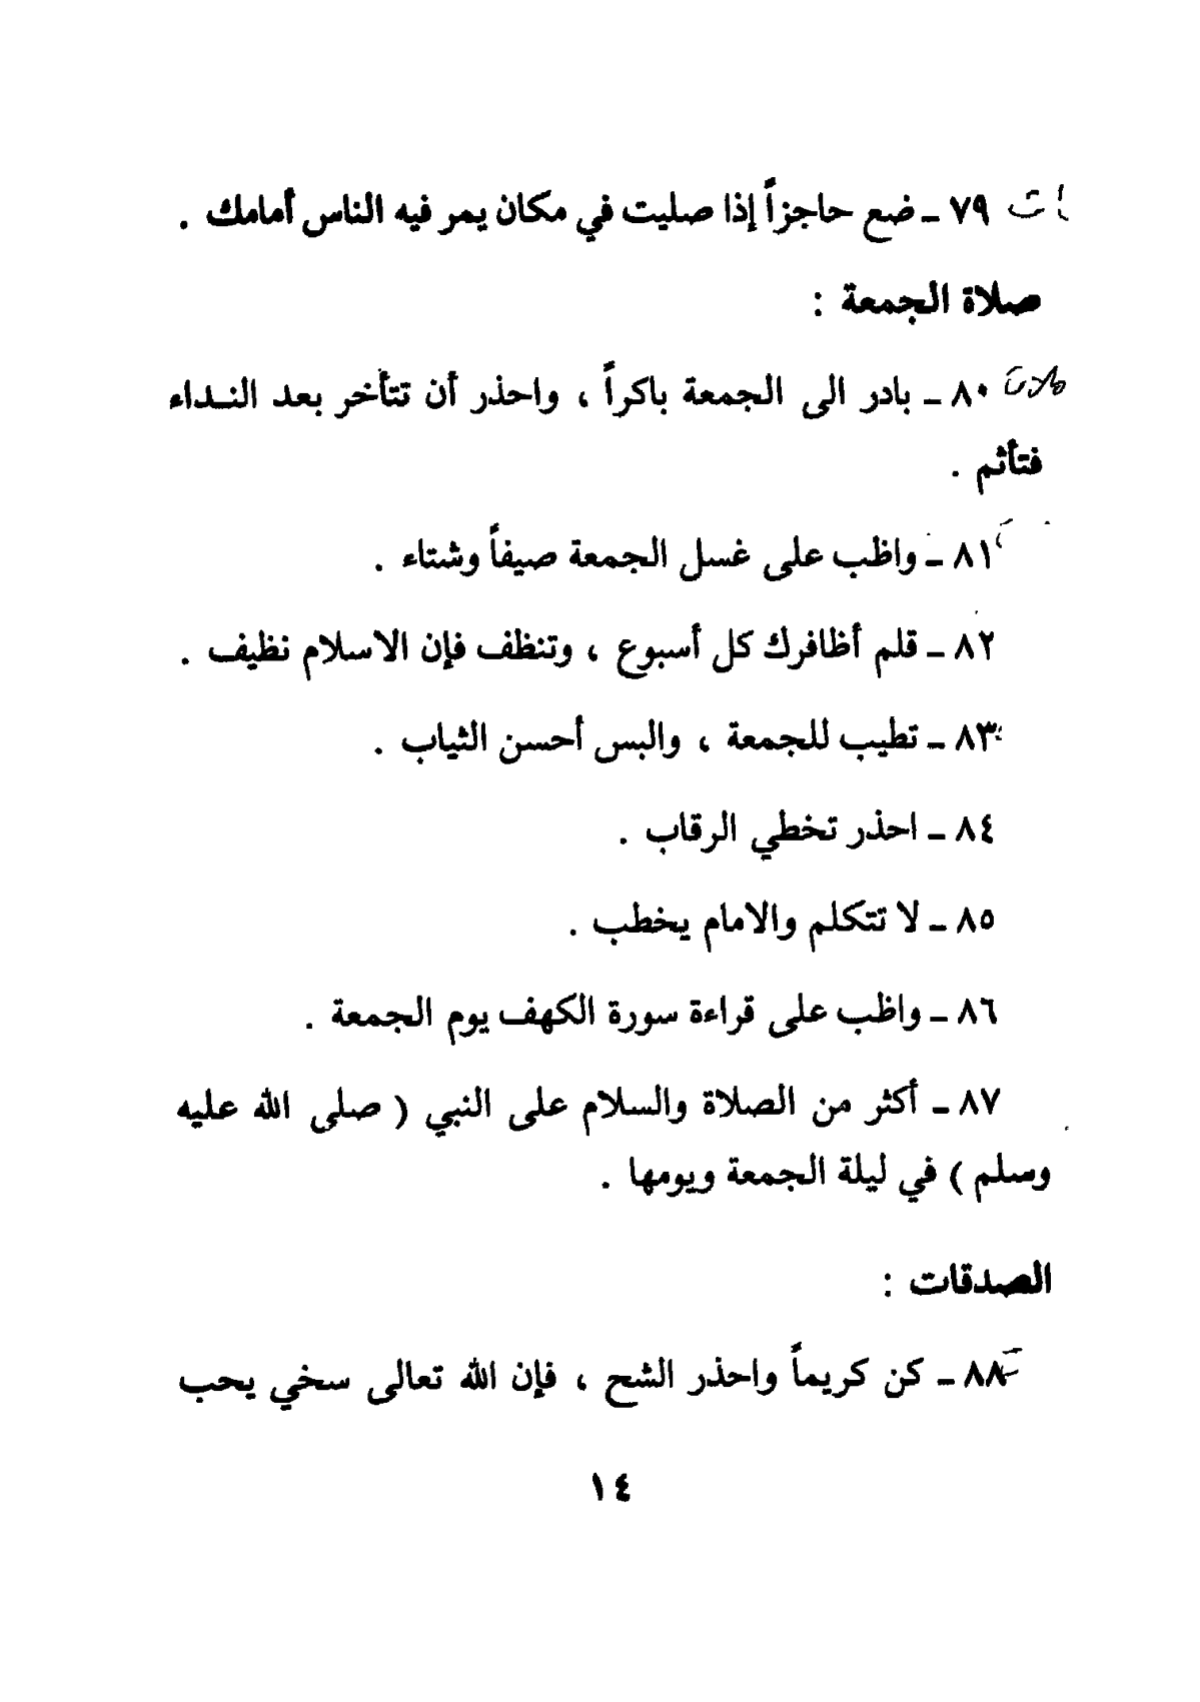 ٧٩ ـ ضع حاجزاً إذا صليت في مكان يمر فيه الناس أمامك .
صلاة الجمعة :
٨٠ ـ بادر الى الجمعة باكراً ، واحذر أن تتأخر بعد النـداء
فتأثم .
٨١ ـ واظب على غسل الجمعة صيفاً وشتاء .
٨٢ ـ قلم أظافرك كل أسبوع ، وتنظف فإن الاسلام نظيف .
٨٣ ـ تطيب للجمعة ، والبس أحسن الثياب .
٨٤ ـ احذر تخطي الرقاب .
٨٥ ـ لا تتكلم والامام يخطب .
٨٦ ـ واظب على قراءة سورة الكهف يوم الجمعة .
٨٧ ـ أكثر من الصلاة والسلام على النبي ( صلى الله عليه
وسلم ) في ليلة الجمعة ويومها .
الصدقات :
٨٨ ـ كن كريماً واحذر الشح ، فإن الله تعالى سخي يحب
١٤